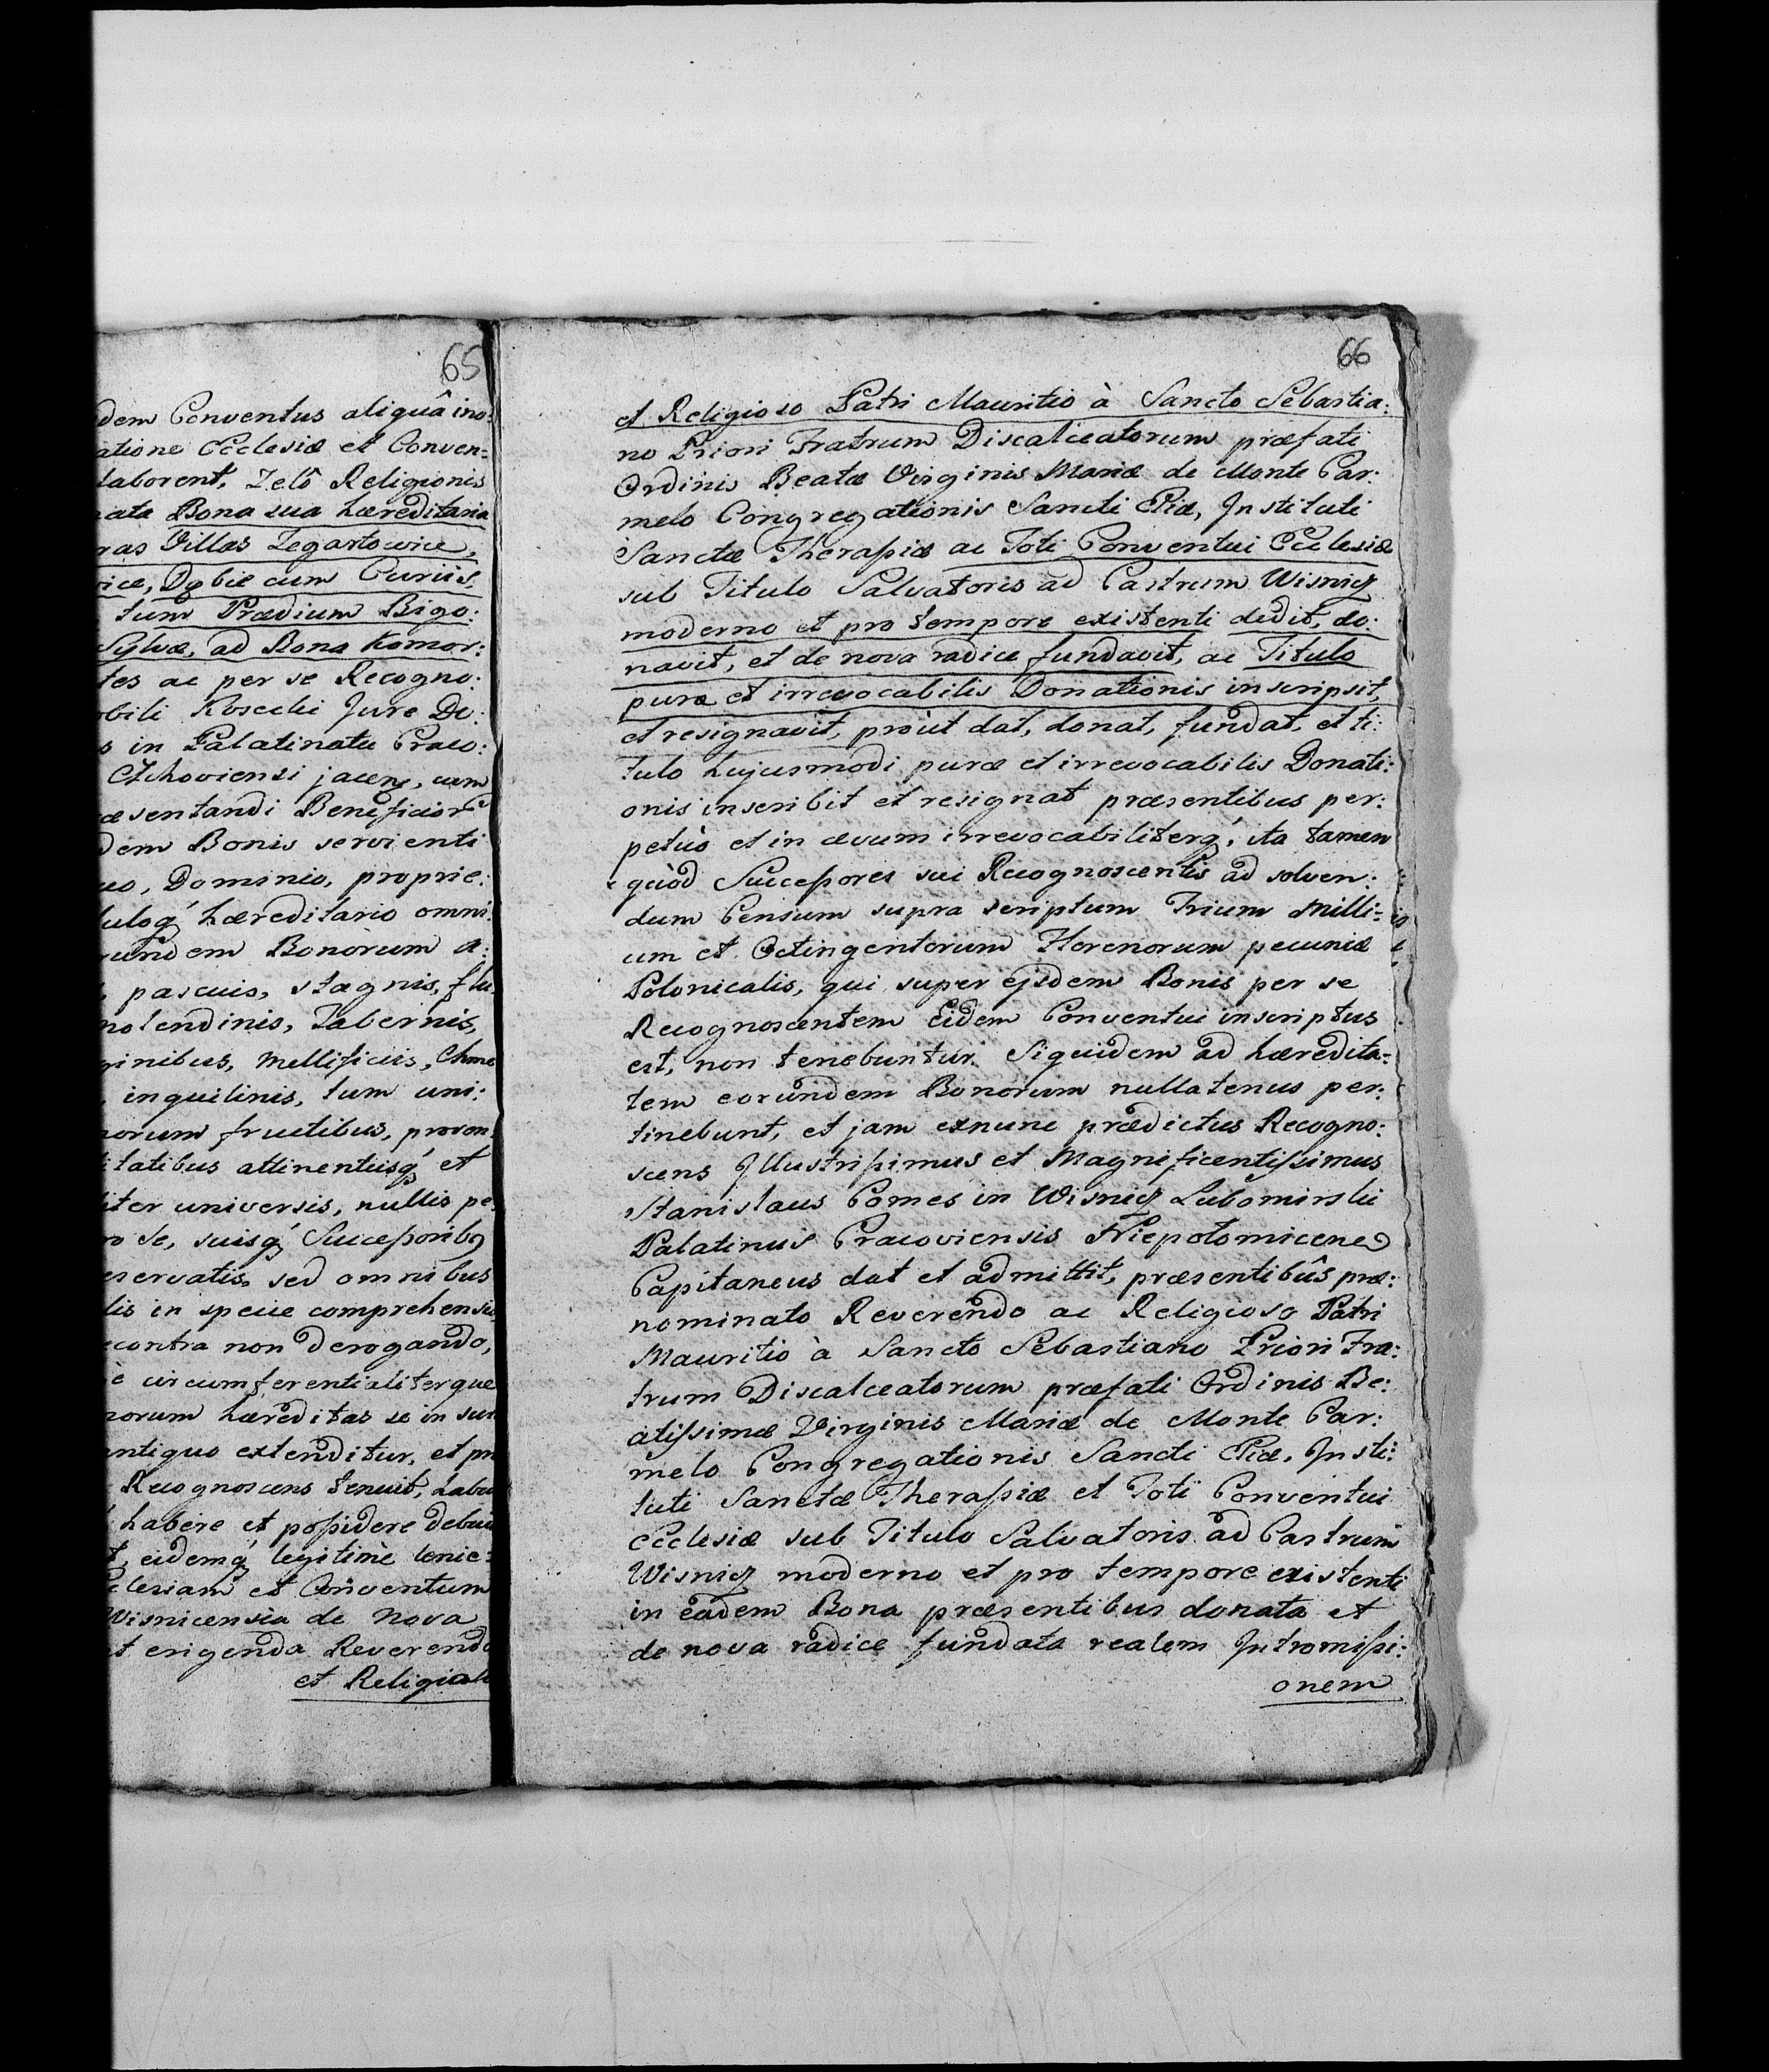 65
dem Conventus aliquâ ino:
atione Ecclesiæ et Conven=
laborent, Zelô Religionis
ata Bona sua hæreditaria
ras Villas Zegartowice,
ice, Dąbie cum Curiis,
tum Prædium Bigo:
Sylvæ, ad Bona Komor:
tes ac per se Recogno:
obili Koscelii Jure De:
s in Palatinatu Craco:
Czchoviensi jacen, cum
æsentandi Beneficior
dem Bonis servienti
uo, Dominio, proprie:
tuloq́ hæreditario omni:
rundem Bonòrum a:
pascuis, stagnis, flu
molendinis, Tabernis,
ginibus, Mellificiis, Chme
inquilinis, tum uni:
norum fructibus, proven
itatibus attinentiisq́ et
liter universis, nullis pe
ro se, suisq́ Successoribq
eservatis, sed omnibus
lis in specie comprehensis
econtra non derogando,
è circumferentialiterque
norum hæreditas se in sui
antiquo extenditur, et pr
Recognoscens tenuit, habu
habere et possidere debui
t, eidemq́ legitimè tenie:
clesiam et Conventum
Wisnicensia de Nova
et erigenda Reverendo
et Religioso
66
et Religioso Patri Mauritio à Sancto Sebastia:
no Priori Fratrum Discalceatorum præfati
Ordinis Beatæ Virginis Mariæ de Monte Car:
melo Congregationis Sancti Eliæ, Instituti
Sanctæ Therasiæ ac Toti Conventui Ecclesiæ
sub Titulo Salvatoris ad Castrum Wisnicz
moderno et pro tempore existenti dedit, do:
navit, et de nova radice fundavit, ac Titulo
puræ et irrevocabilis Donationis inscripsit,
et resignavit, proùt dat, donat, fundat, et ti:
tulo hujusmodi puræ et irrevocabilis Donati:
onis inscribit et resignat præsentibus per:
petùo et in ævum irrevocabiliterq́, ita tamen
quòd Successores sui Recognoscentis ad solven:
dum Censum supra scriptum Trium Milli=
um et Octingentorum Florenorum pecuniæ
Polonicalis, qui super ejsdem Bonis per se
Recognoscentem Eidem Conventui inscriptus
est, non tenebuntur. Siquidem ad hæredita=
tem eorundem Bonorum nullatenus per:
tinebunt, et jam exnunc prædictus Recogno:
scens Illustrissimus et Magnificentissimus
Stanislaus Comes in Wisnicz Lubomirski
Palatinus Cracoviensis Niepotomicenes
Capitaneus dat et admittit, præsentibûs præ:
nominato Reverendo ac Religioso Patri
Mauritio à Sancto Sebastiano Priori Fra:
trum Discalceatorum præfati Ordinis Be:
atissimæ Virginis Mariæ de Monte Car:
melo Congregationis Sancti Eliæ, Insti:
tuti Sanctæ Therasiæ et Toti Conventui
Ecclesiæ sub Titulo Salvatoris ad Castrum
Wisnicz moderno et pro tempore existenti
in eadem Bona præsentibus donata et
de nova radice fundata realem Intromissi:
onem